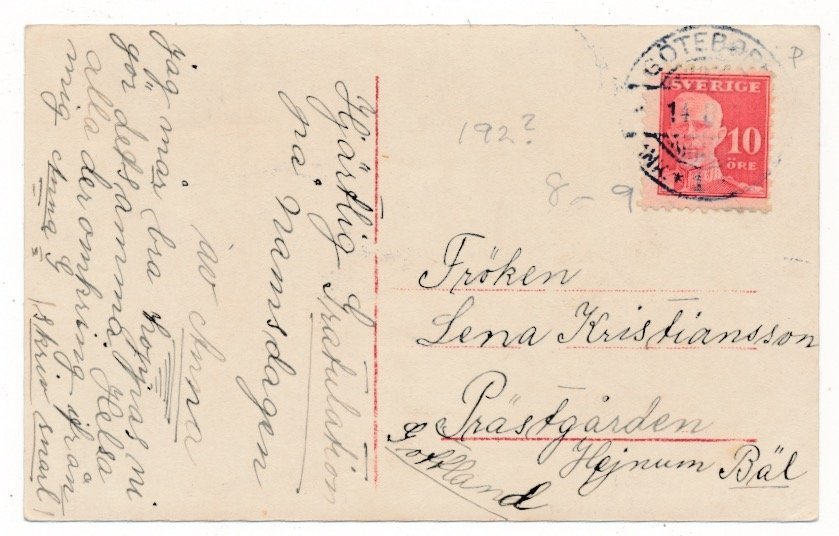 Hjärtlig Gratulation
på namnsdagen
av Anna
Jag mår bra hoppas ni
gör detsamma. Hälsa
alla deromkring ifrån
mig Anna G
(skriv snart)
GÖTEBORG
14
SVERIGE
10
ÖRE
192?
8-9
P
Fröken
Lena Kristiansson
Prästgården
Hejnum Bäl
Gottland